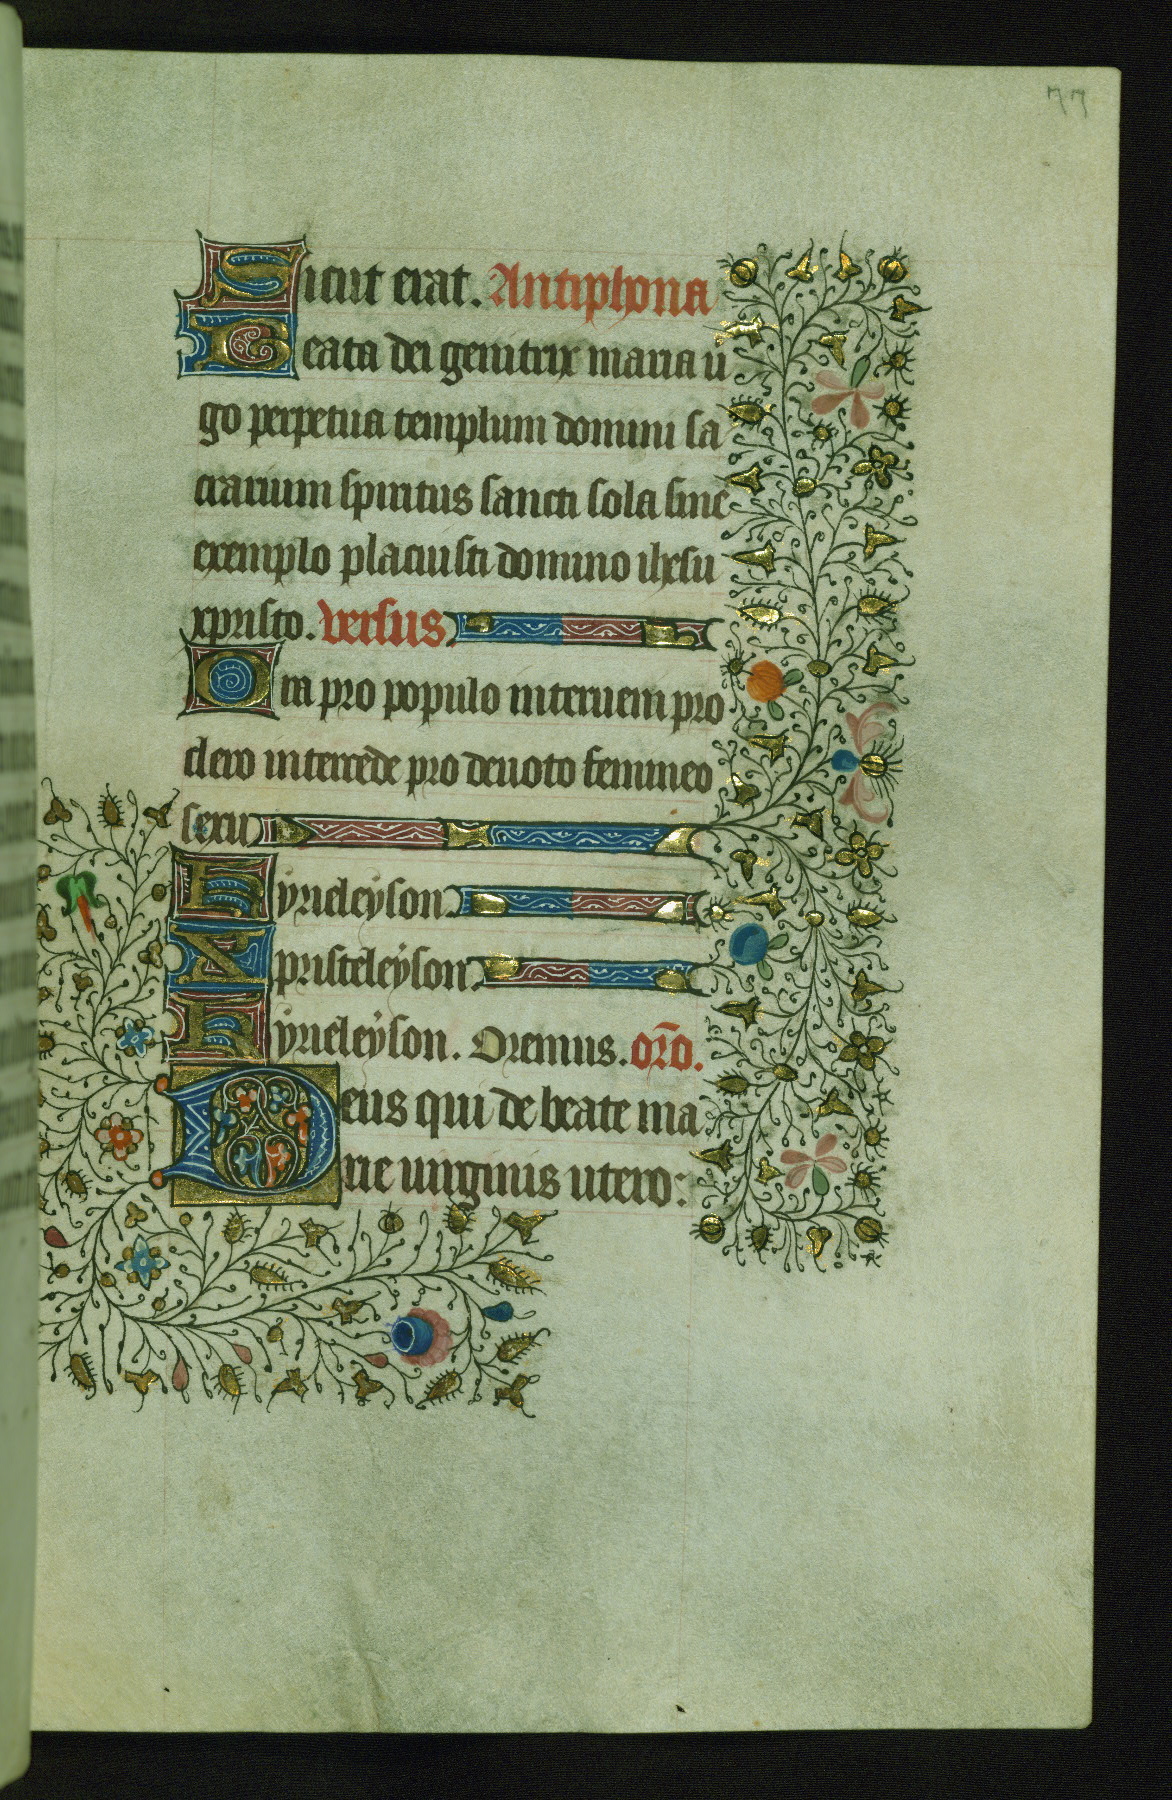 77
Sicut erat. Antiphona
Beata dei genitrix maria u
go perpetua templum domini sa
crarium spiritus sancti sola sine
exemplo placuisti domino ihesu
xpristo. Versus
Ora pro populo interueni pro
clero intercede pro deuoto femineo
sexu
kyrieleyson.
Xpristeleyson
kyrieleyson. Oremus. oro.
Deus qui de beate ma
rie uirginis utero: